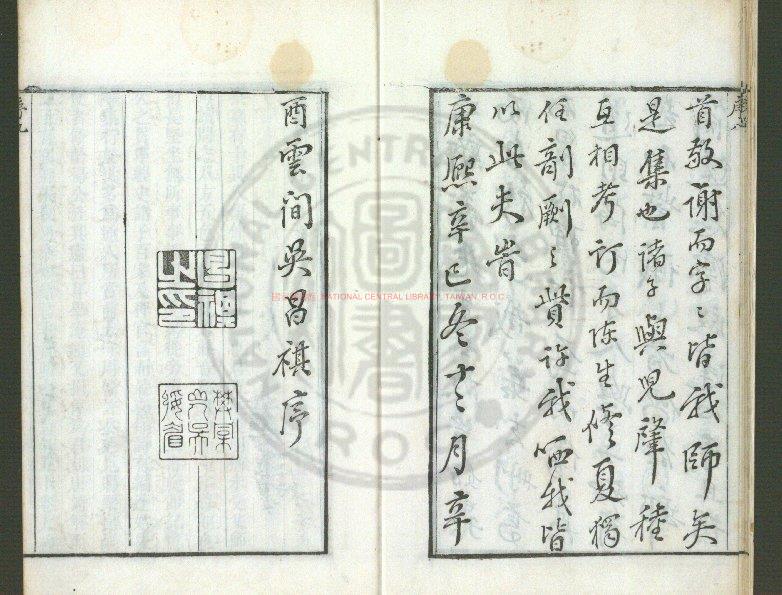 首敬謝而字〻皆我師矣
是集也諸子與兒肇種
互相考訂而陈生修夏獨
任剞劂之貲许我哂我皆
以此夫峕
康熙辛巳冬十二月辛
酉雲間吳昌祺序
昌祺之印
NATIONAL CENTRAL LIBRARY, TAIWAN, R.O.C